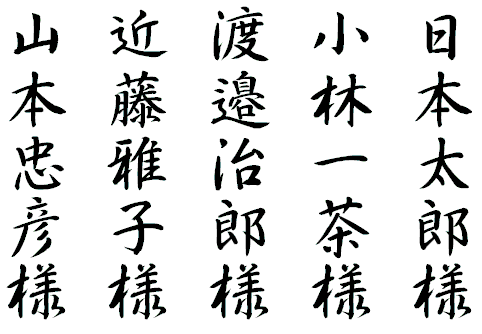 日本太郎様
小林一茶様
渡邉治郎様
近藤雅子様
山本忠彦様